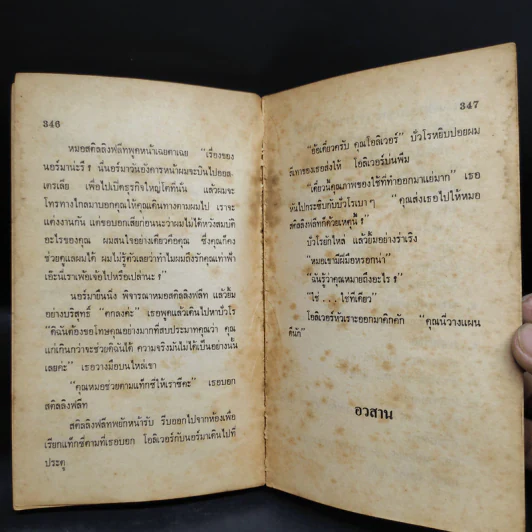 346
หมอสคิลลิงฟลีทพูดหน้าเฉยตาเฉย "เรื่องของ
นอร์มาน่ะรึ ! นี่นอร์มาวันอังคารหน้าผมจะบินไปออส-
เตรเลีย เพื่อไปเปิดธุรกิจใหญ่โตที่นั่น แล้วผมจะ
โทรทางไกลมาบอกคุณให้คุณเดินทางตามผมไป เราจะ
แต่งงานกัน แต่ขอบอกเสียก่อนนะว่าผมไม่ได้หวังสมบัติ
อะไรของคุณ ผมสนใจอย่างเดียวคือคุณ ซึ่งคุณก็คง
ช่วยดูแลผมได้ ผมไม่รู้ตัวเลยว่าทำไมผมถึงรักคุณเท่าฟ้า
เอ๊ะนี่เราเพ้อเจ้อไปหรือเปล่านะ !"
นอร์มายืนนิ่ง พิจารณาหมอสคิลลิงฟลีท แล้วยิ้ม
อย่างบริสุทธิ์ "ตกลงค่ะ" เธอพูดแล้วเดินไปหาบัวโร
"ดิฉันต้องขอโทษคุณอย่างมากที่สบประมาทคุณว่า คุณ
แก่เกินกว่าจะช่วยดิฉันได้ ความจริงมันไม่ได้เป็นอย่างนั้น
เลยค่ะ" เธอวางมือบนไหล่เขา
"คุณหมอช่วยตามแท็กซี่ให้เราซิคะ" เธอบอก
สคิลลิงฟลีท
สคิลลิงฟลีทพยักหน้ารับ รีบออกไปจากห้องเพื่อ
เรียกแท็กซี่ตามที่เธอบอก โอลิเวอร์กับนอร์มาเดินไปที่
ประตู
347
"อ้อเดี๋ยวครับ คุณโอลิเวอร์" บัวโรหยิบปอยผม
สีเทาของเธอส่งให้ โอลิเวอร์บ่นพึม
"เดี๋ยวนี้คุณภาพของใช้ที่ทำออกมาแย่มาก" เธอ
หันไปกระซิบกับบัวโรเบา ๆ "คุณส่งเธอไปให้หมอ
สคิลลิงฟลีทก็ด้วยเหตุนี้ !"
บัวโรยักไหล่ แล้วยิ้มอย่างร่าเริง
"หมอเขามีฝีมือหรอกน่า"
"ฉันรู้ว่าคุณหมายถึงอะไร !"
"ใช่ . . . ใช่ทีเดียว"
โอลิเวอร์หัวเราะออกมาคิกคัก "คุณนี่วางแผน
ดีนัก"
อวสาน